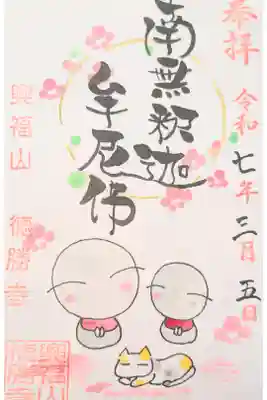 奉拝
令和七年三月五日
南無釈迦
牟尼佛
興福山 徳勝寺